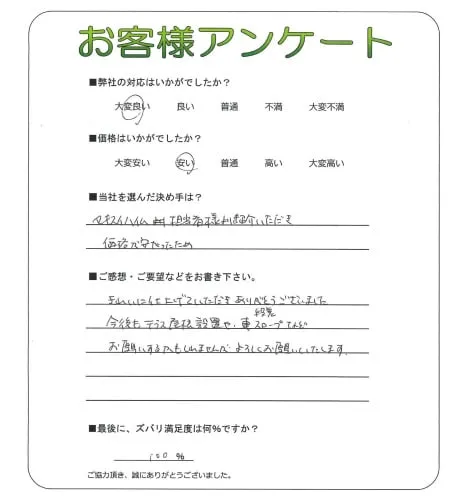 お客様アンケート
■弊社の対応はいかがでしたか？
大変良い 良い 普通 不満 大変不満
■価格はいかがでしたか？
大変安い 安い 普通 高い 大変高い
■当社を選んだ決め手は？
セキスイハイム 担当者様 紹介いただき
価格が安かったため
■ご感想・ご要望などをお書き下さい。
きれいに仕上げていただきありがとうございました
段差
今後もテラス屋根設置や、車スロープなど
お願いするかもしれませんが よろしくお願いいたします。
■最後に、ズバリ満足度は何％ですか？
100 %
ご協力頂き、誠にありがとうございました。